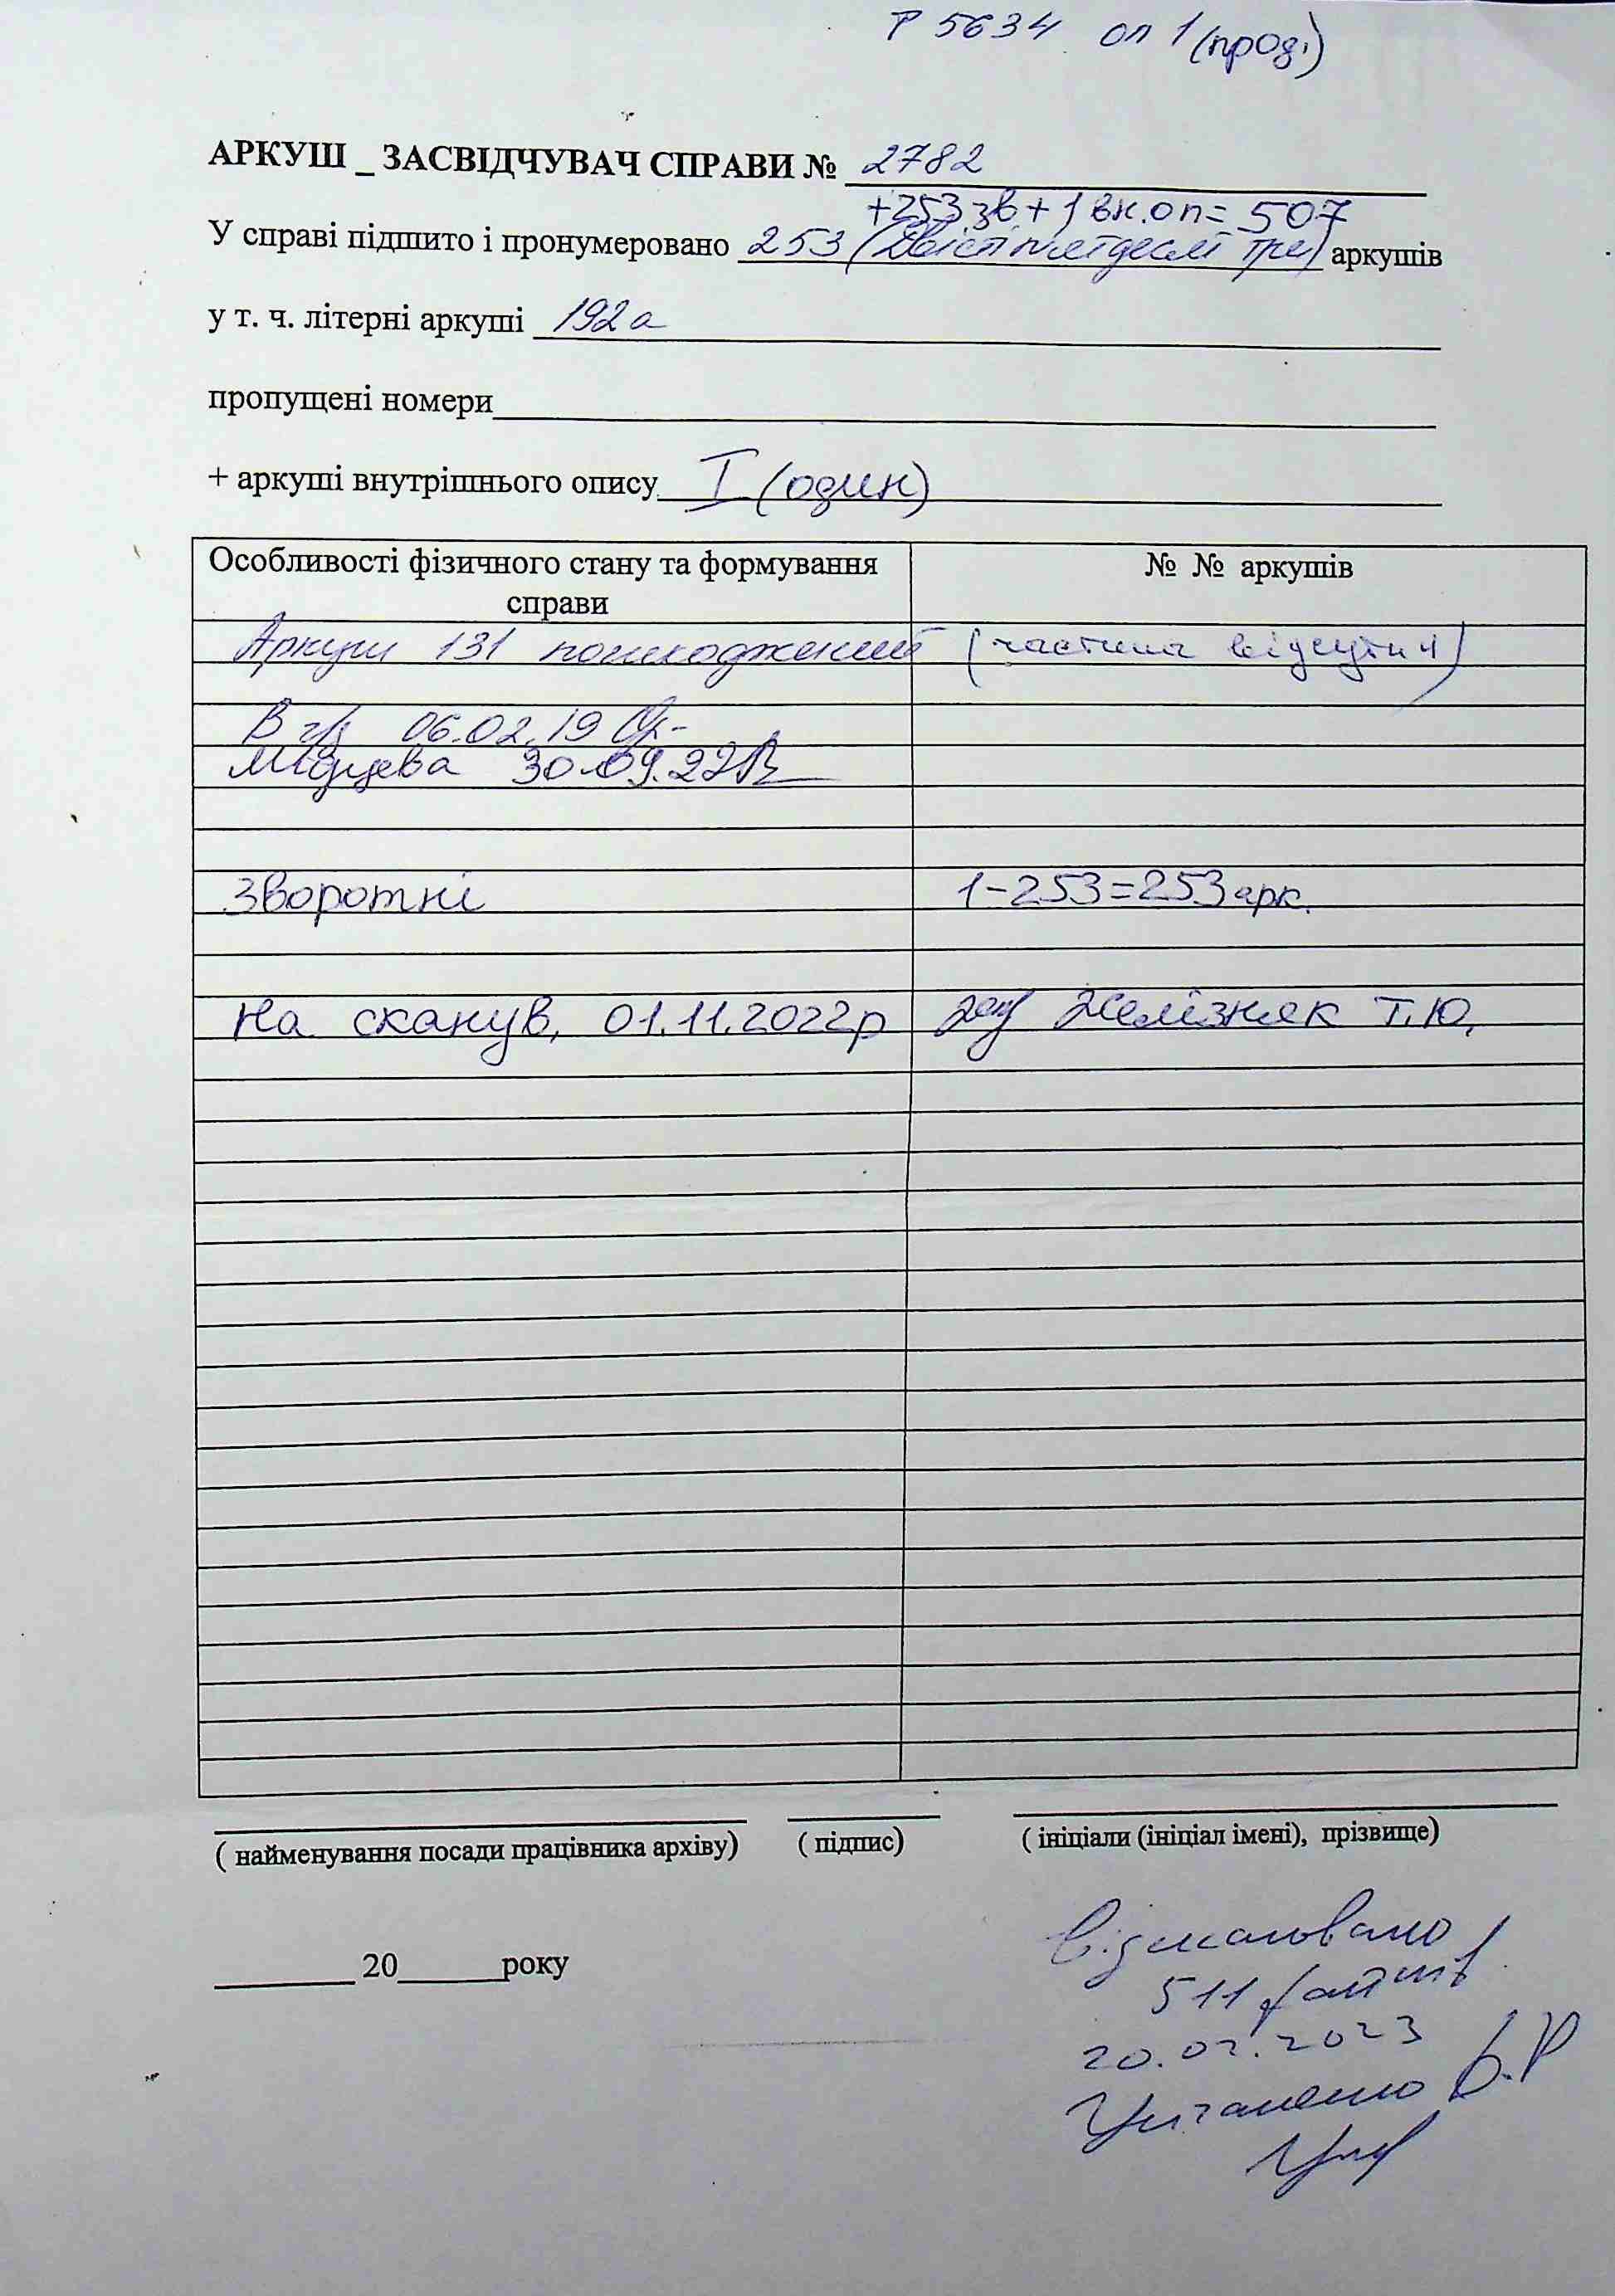 Р 5634 оп 1 (прод.)
АРКУШ _ ЗАСВІДЧУВАЧ СПРАВИ № 2782
+253 зв + 1 вн.оп = 507
У справі підшито і пронумеровано 253 (двісті п'ятдесят три) аркушів
у т. ч. літерні аркуші 192а
пропущені номери
+ аркуші внутрішнього опису I (один)
Особливості фізичного стану та формування справи
№ № аркушів
Аркуш 131 пошкоджений (частина відсутня)
В ч/з 06.02.19
30.09.22
Зворотні 1-253=253 арк.
На сканув. 01.11.2022р Желізняк Т.Ю.
( найменування посади працівника архіву) ( підпис) ( ініціали (ініціал імені), прізвище)
20 року
Відскановано
511 файлів
20.02.2023